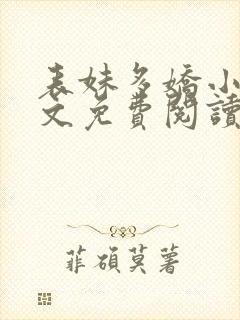 表妹多嬌小
文免費閱讀
菲碩莫著